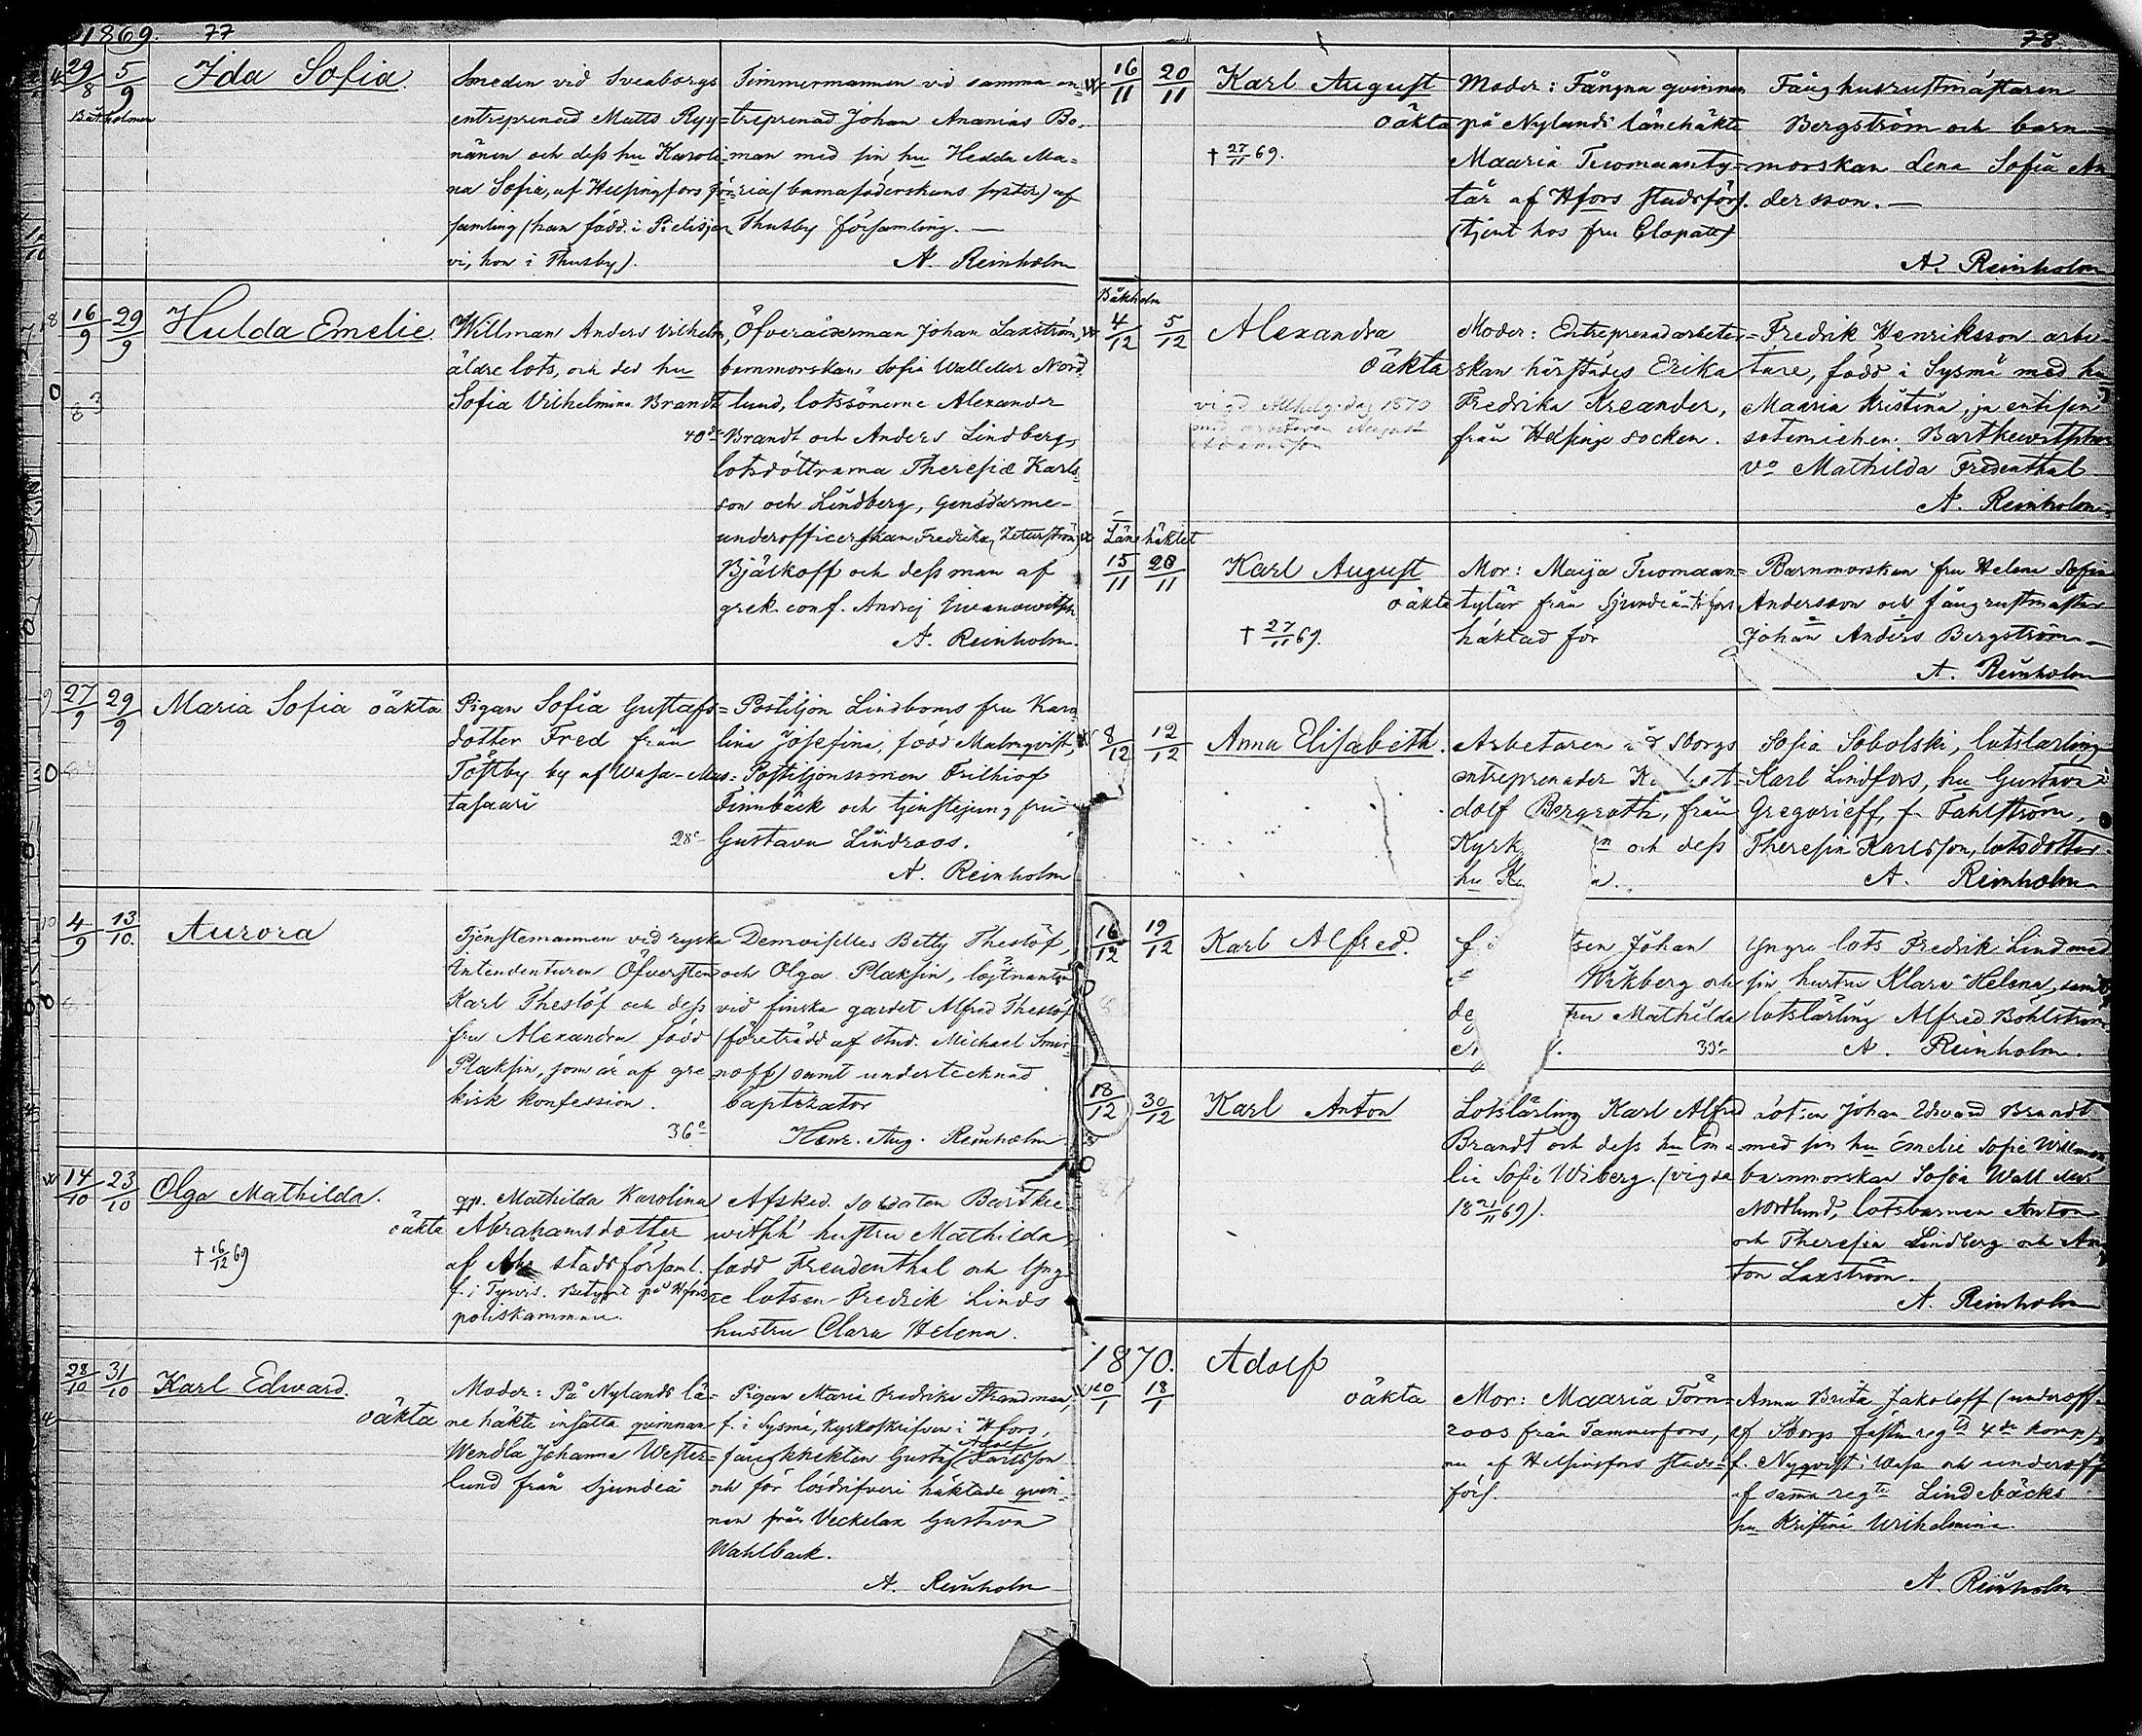 1869. 77
29/8 5/9 Ida Sofia.
Båkholmen
Smeden vid Sveaborgs
entreprenad Matts Ryy=
nänen och dess hu Karoli=
na Sofia, af Helsingfors för=
samling (han född i Pielisjer
vi, hon i Thusby).
Timmermannen vid samma en=
treprenad Johan Ananias Bo=
man med sin hu Hedda Ma=
ria (barnaföderskans syster) af
Thusby församling. —
A. Reinholm
16/9 29/9 Hulda Emelie.
Willman Anders Vilhelm,
äldre lots, och des hu
Sofia Vilhelmina Brandt
40 år
Öfverålderman Johan Laxström,
barnmorskan Sofia Wall eller Nord=
lund, lotssönerne Alexander
Brandt och Anders Lindberg,
lotsdöttrarna Theresia Karls=
son och Lindberg, Gensdarme-
underofficerskan Fredrika (Zeturström)
Bjälkoff och dess man af
grek. conf. Andrej Iwanowitsch.
A. Reinholm.
27/9 29/9 Maria Sofia oäkta
Pigan Sofia Gustafs=
dotter Fred från
Töstby by af Wasa-Mus=
tasaari
28 å
Postiljon Lindboms fru Karo=
lina Josefina, född Malmqvist,
Postiljonssonen Frithiof
Finnbäck och tjenstejungfru
Gustava Lindroos.
A. Reinholm
4/9 13/10. Aurora
Tjenstemannen vid ryska
Intendenturen Öfversten
Karl Theslöf och dess
fru Alexandra född
Plaksin, som är af gre
kisk konfession.
36 å
Demoiselles Betty Theslöf,
och Olga Plaksin, löjtnanten
vid finska gardet Alfred Theslöf
(företrädd af stud. Michael Smir=
noff) samt undertecknad
baptizator
Henr. Aug. Reinholm
14/10 23/10 Olga Mathilda.
oäkta
† 16/12 69
qp. Mathilda Karolina
Abrahamsdotter
af Åbo stadsförsaml.
f. i Tyrvis. Betygt på Hfors
poliskammare.
Afsked. soldaten Bartke
witsch' hustru Mathilda,
född Freudenthal och Yng=
re lotsen Fredrik Linds
hustru Clara Helena.
28/10 31/10 Karl Edward.
oäkta
Moder: På Nylands lä=
ne häkte insatta qvinnan
Wendla Johanna Wester=
lund från Sjundeå
Pigan Maria Fredrika Strandman,
f. i Sysmä, kyrkoskrifven i Hfors,
Adolf
fångknekten Gustaf Karlsson
och för lösdrifveri häktade qvin=
nan från Veckelax Gustava
Wahlback.
A. Reinholm
78
16/11 20/11 Karl August
oäkta
† 27/11 69.
Moder: Fångna qvinnan
på Nylands länehäkte
Maaria Tuomaanty=
tär af Hfors stadsförs.
(tjent hos fru Clopatt)
Fånghusrustmästaren
Bergström och barn=
morskan Lena Sofia An
dersson. —
A. Reinholm
Båkholm
4/12 5/12 Alexandra
oäkta
vigd Allhelg.dag 1870
med arbetaren August
Moder: Entreprenadarbeter=
skan härstädes Erika
Fredrika Kreander,
från Helsinge socken.
Fredrik Henriksson arbe=
tare, född i Sysmä med hu
Maaria Kristina, ja entisen
sotamiehen Bartkewitschin
vo Mathilda Fredenthal
A. Reinholm.
Länehäktet
15/11 20/11 Karl August
oäkta
† 27/11 69.
Mor: Maija Tuomaan=
tytär från Sjundeå Hfors
häktad för
Barnmorskan fru Helena Sofia
Andersson och fångrustmästar
Johan Anders Bergström
A. Reinholm
8/12 12/12 Anna Elisabeth.
Arbetaren vid Sborgs
entreprenader
dolf Bergroth, från
Kyrk och dess
hu
Sofia Sobolski, lotslärling
Karl Lindfors, hu Gustava
Gregorieff, f. Fahlström,
Theresia Karlsson, lotsdotter.
A. Reinholm
16/12 19/12 Karl Alfred.
tsen Johan
Wikberg och
Mathilda
33 å
Yngre lots Fredrik Lind med
sin hustru Klara Helena, samt
lotslärling Alfred Böhlström
A. Reinholm.
18/12 30/12 Karl Anton
Lotslärling Karl Alfred
Brandt och dess hu Em=
lie Sofie Wiberg. (vigda
18 21/11 69).
Lotsen Johan Edvard Brandt
med sin hu Emelie Sofie Willman
barnmorskan Sofia Wall eller
Nordlund, lotsbarnen Anton
och Theresia Lindberg och An
ton Laxström.
A. Reinholm
1870. Adolf
10/1 18/1 oäkta
Mor: Maaria Törn=
roos från Tammerfors,
nu af Helsingfors stads=
förs.
Anna Brita Jakoleff (underoff.
af Sborgs fästn regts 4de komp)
f. Nyqvist i Wasa och underoff
af samma regts Lindebäcks
hu Kristina Wilhelmina.
A. Reinholm